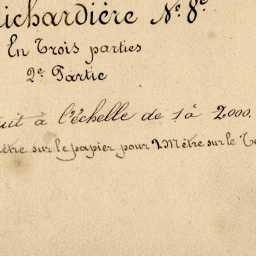 ichardière N.º 8.e
En trois parties
2.e Partie
uit à l'échelle de 1 à 2000.
ètre sur le papier pour 2 Mètre sur le Te